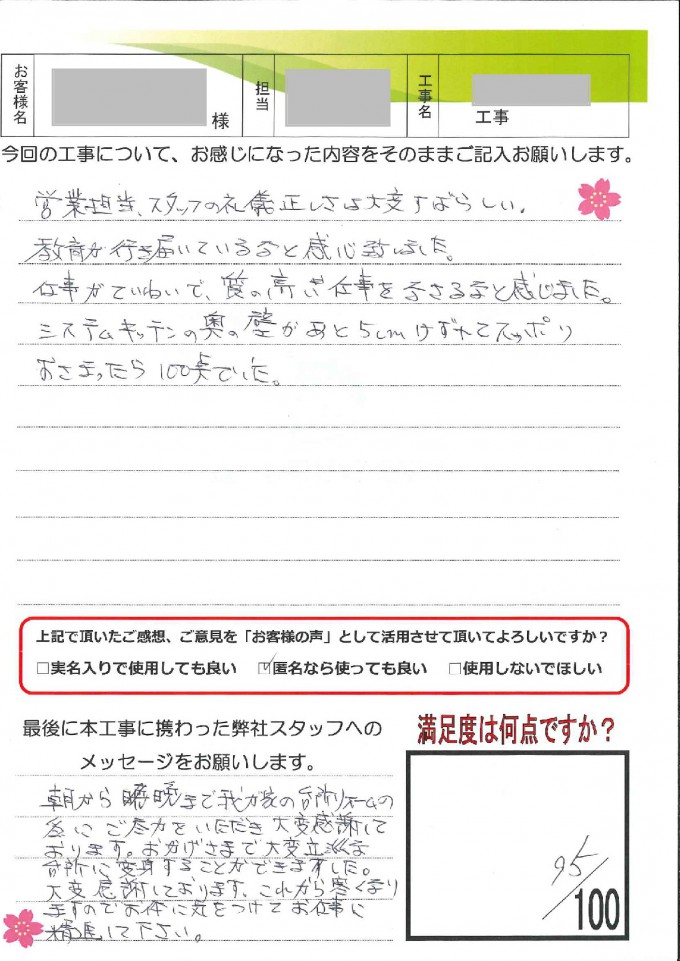 お客様名
様
担当
工事名
工事
今回の工事について、お感じになった内容をそのままご記入お願いします。
営業担当、スタッフの礼儀正しさは大変すばらしい。
教育が行き届いているなと感じ致しました。
仕事がていねいで、質の高い仕事をなさるなと感じました。
システムキッチンの奥の壁があと5cmけずれてスッポリ
おさまったら100点でした。
上記で頂いたご感想、ご意見を「お客様の声」として活用させて頂いてよろしいですか？
□実名入りで使用しても良い ☑匿名なら使っても良い □使用しないでほしい
最後に本工事に携わった弊社スタッフへの
メッセージをお願いします。
朝から晩まで我が家の台所リフォームの
為にご尽力をいただき大変感謝して
おります。おかげさまで大変立派な
台所に変身することができました。
大変感謝しております、これから寒くなり
ますのでお体に気をつけてお仕事に
精進して下さい。
満足度は何点ですか？
95
/100